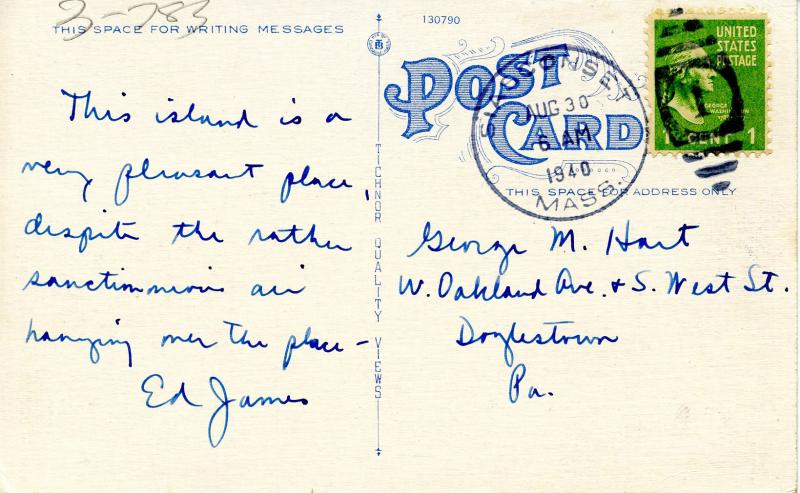 2-783
THIS SPACE FOR WRITING MESSAGES
This island is a
very pleasant place,
despite the rather
sanctimonious air
hanging over the place —
Ed James
TICHNOR QUALITY VIEWS
130790
POST
CARD
SIASCONSET
AUG 30
6 AM
1940
MASS.
UNITED
STATES
POSTAGE
GEORGE
WASHINGTON
1 CENT 1
THIS SPACE FOR ADDRESS ONLY
George M. Hart
W. Oakland Ave. & S. West St.
Doylestown
Pa.